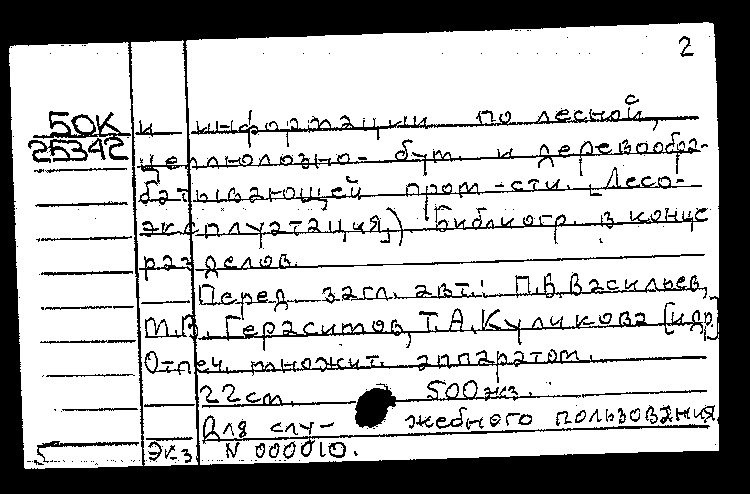 2
50К
25342
и информации по лесной,
целлюлозно-бум. и деревообра-
батывающей пром-сти. [Лесо-
эксплуатация]) Библиогр. в конце
разделов.
Перед загл. авт.: П.В. Васильев,
М.В. Герасимов, Т.А. Куликова [и др]
Отпеч. множит. аппаратом.
22 см. 500 экз.
Для служебного пользования
5 Экз. N 000010.